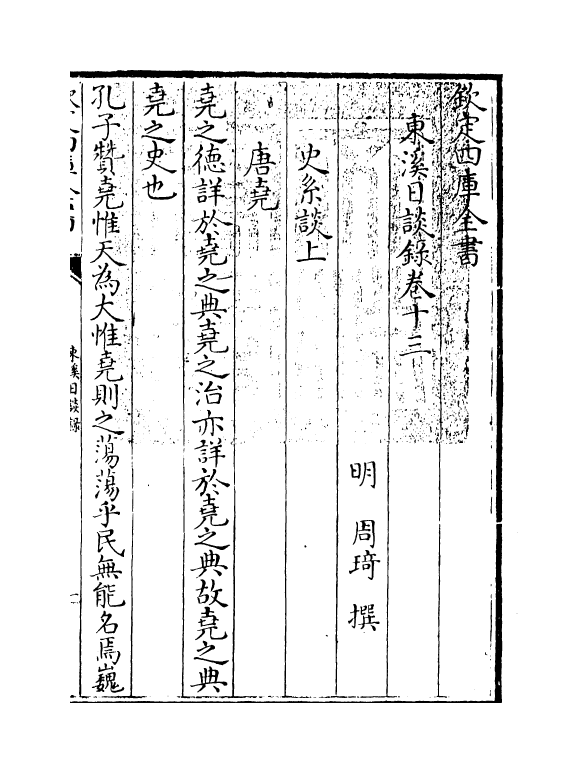 欽定四庫全書
東溪日談錄卷十三
明 周琦 撰
史系談上
唐堯
堯之徳詳於堯之典堯之治亦詳於堯之典故堯之典
堯之史也
孔子贊堯惟天為大惟堯則之蕩蕩乎民無能名焉巍
東溪日談錄
一